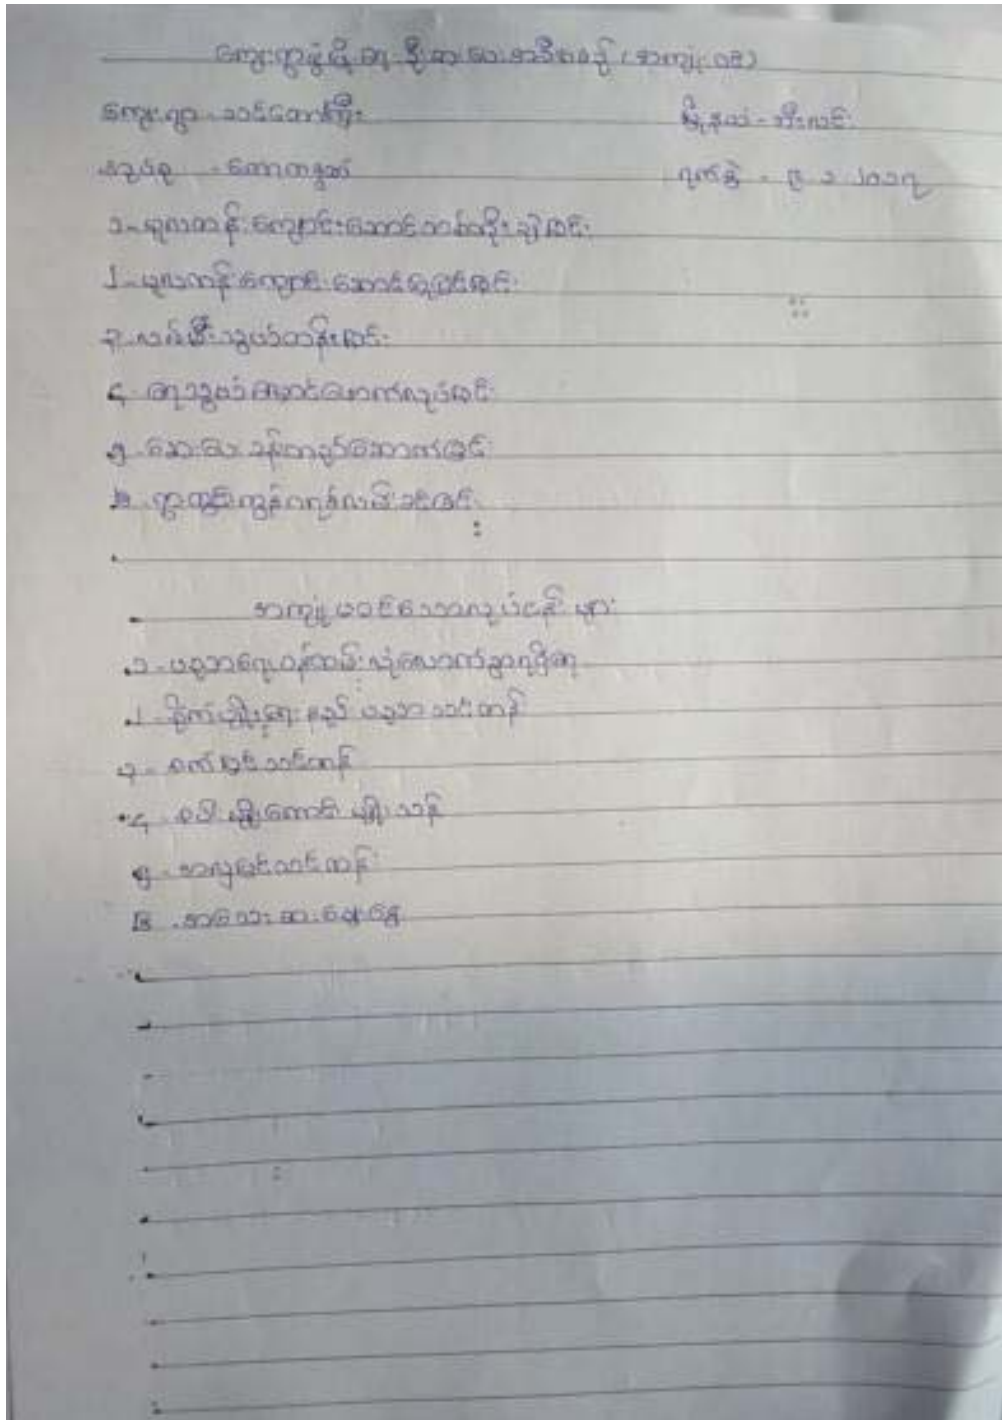 ကျေးရွာဖွံ့ဖြိုးရေး ဦးစားပေးအစီအစဉ် (အကျုံးဝင်)
ကျေးရွာ - သင်တောကြီး
မြို့နယ် - ဘီးလင်း
အုပ်စု - တောကနွဲ
ရက်စွဲ - ၉ ၁ ၂၀၁၇
၁ - မူလတန်းကျောင်းဆောင်သစ်တိုးချဲ့ခြင်း
၂ - မူလတန်းကျောင်းဆောင်ပြုပြင်ခြင်း
၃ - လမ်းမီးသွယ်တန်းခြင်း
၄ - ရေသွယ်မြောင်းဖောက်လုပ်ခြင်း
၅ - ဆေးပေးခန်းတည်ဆောက်ခြင်း
၆ - ရွာတွင်းကွန်ကရစ်လမ်းခင်းခြင်း
အကျုံးမဝင်သောလုပ်ငန်းများ
၁ - ပညာရေးဝန်ထမ်းလုံလောက်စွာရရှိရေး
၂ - စိုက်ပျိုးရေးနည်းပညာသင်တန်း
၃ - စက်ပြင်သင်တန်း
၄ - စပါးမျိုးကောင်းမျိုးသန့်
၅ - အလှပြင်သင်တန်း
၆ - အသေးစားချေးငွေ